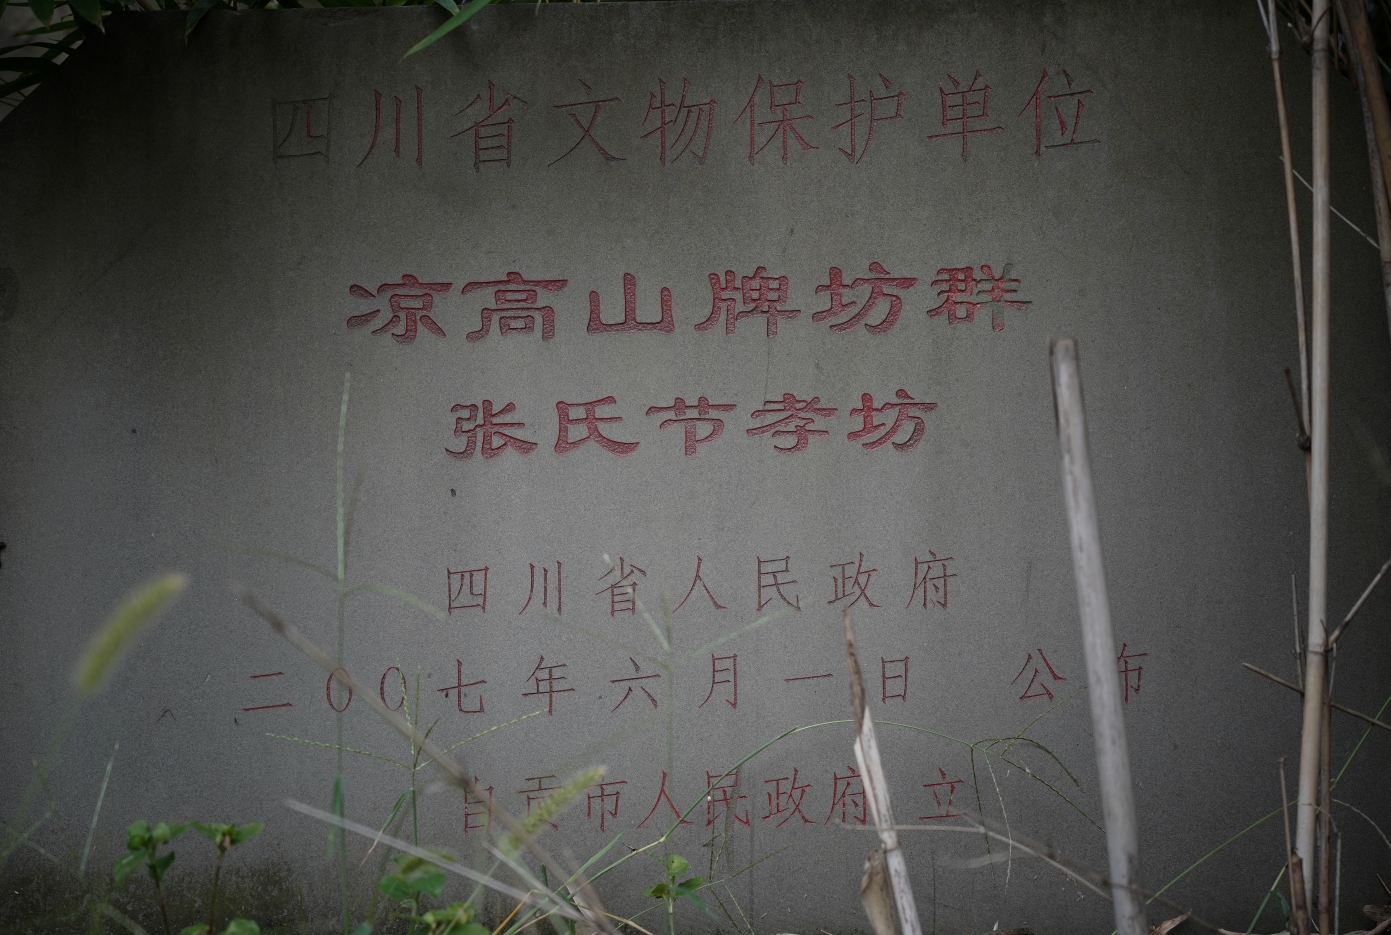 四川省文物保护单位
凉高山牌坊群
张氏节孝坊
四川省人民政府
二00七年六月一日 公布
自贡市人民政府 立